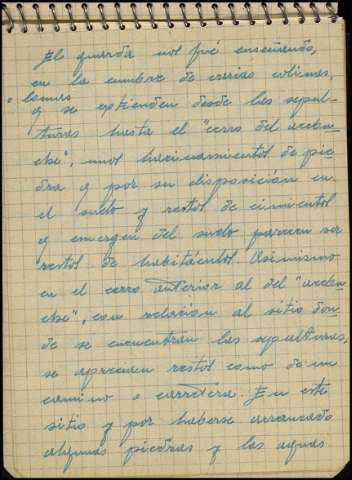 El guarda nos fué enseñando,
en la cumbre de varias colinas,
o lomas
q se extienden desde las sepul-
turas hasta el "cerro del acebu-
che", unos hacinamientos de pie-
dra q por su disposición en
el suelo y restos de cimientos
q emergen del suelo parecen ser
restos de habitáculos. Asimismo
en el cerro anterior al del "acebu-
che", con relación al sitio don-
de se encuentran las sepulturas,
se aprecian restos como de un
camino o carretera. En este
sitio y por haberse arrancado
algunas piedras y las aguas